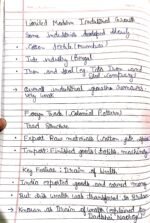 Limited Modern Industrial Growth
Some industries developed slowly
• Cotton textile (Mumbai)
• Jute industry (Bengal)
• Iron and steel (eg Tata Iron and
Steel Company)
→ Overall industrial growth remains
very weak
Foreign Trade (Colonial Pattern)
Trade Structure
• Export Raw materials (Cotton, jute
• Import: Finished goods (textile, machinery
Key Feature: Drain of Wealth
• India exported goods and earned money
• But this wealth was transferred to Britain
→ Known as Drain of Wealth (explained by
Dadabhai Naoroji)